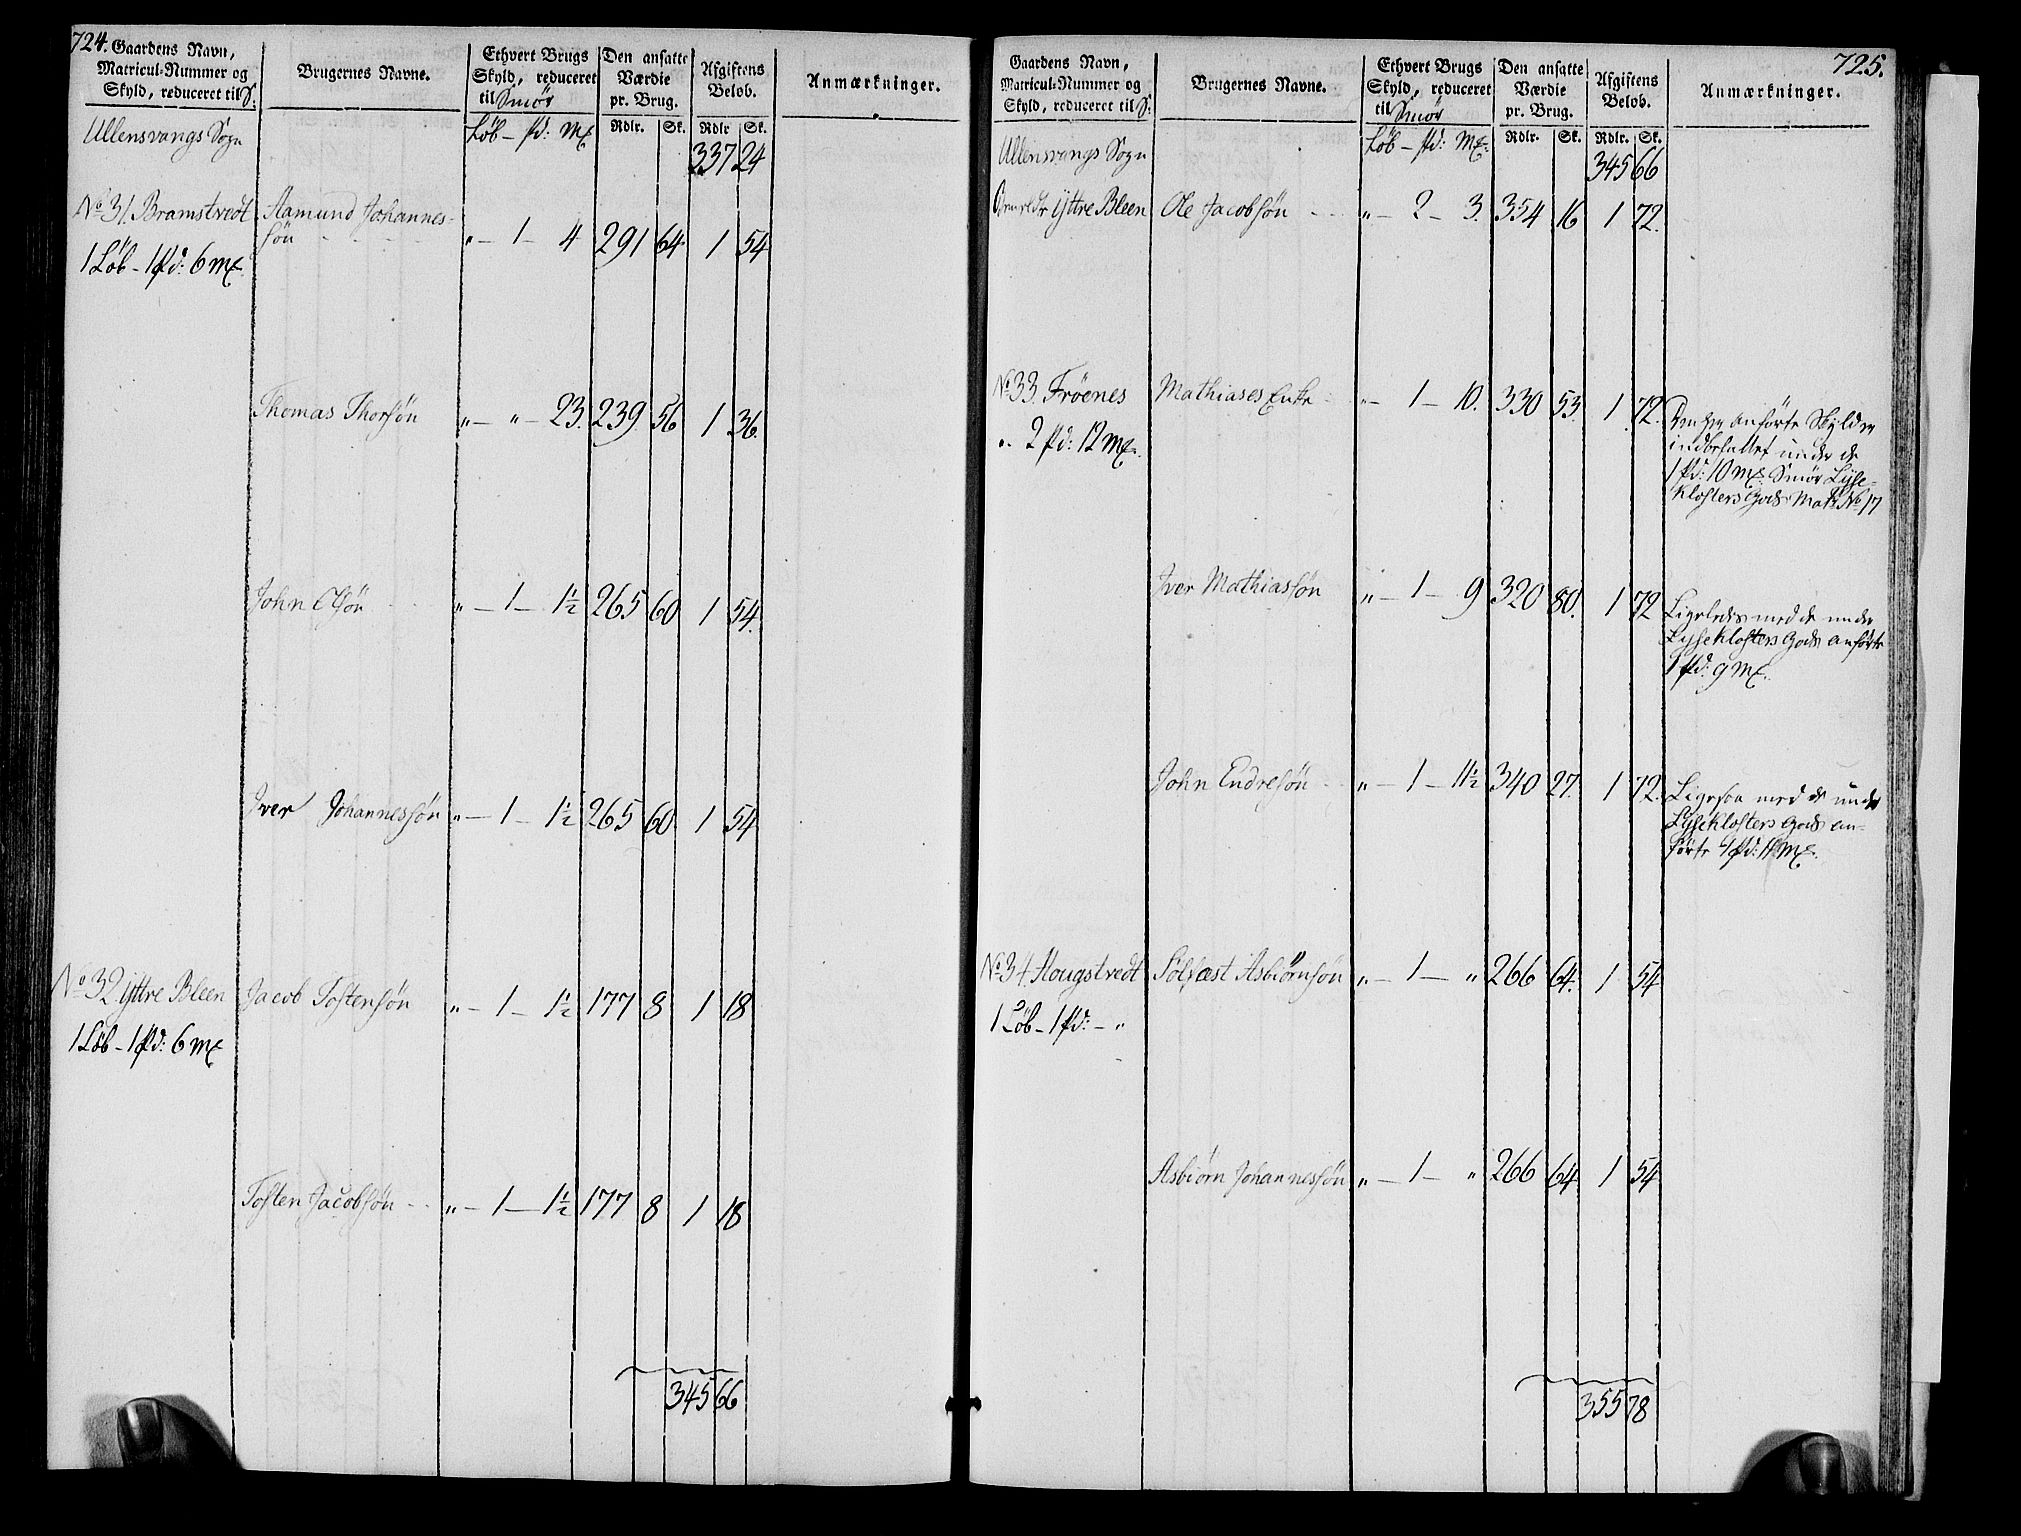 724.
Gaardens Navn,
Matricul-Nummer og
Skyld, reduceret til S:
Brugernes Navne.
Ethvert Brugs
Skyld, reduceret
til Smör
Den ansatte
Værdie
pr. Brug.
Afgiftens
Belob.
Anmærkninger.
Ullensvangs Sogn
Löb – Pd: Mk
Rdlr. Sk. Rdlr Sk.
337 24
No 31. Bramstvedt Aamund Johannes-
søn „ – 1 – 4 291 64 1 54
1 Löb – 1 Pd: 6 Mk
Thomas Thorsøn „ – „ – 23. 239 56 1 36.
John Olsøn „ – 1 – 1½ 265 60 1 54.
Iver Johannessøn „ – 1 – 1½ 265 60 1 54
No 32 Yttre Bleen Jacob Tostensøn „ – 1 – 1½ 177 8 1 18
1 Löb – 1 Pd: 6 Mk
Tosten Jacobsøn „ – 1 – 1½ 177 8 1 18
345 66
725.
Gaardens Navn,
Matricul-Nummer og
Skyld, reduceret til S:
Brugernes Navne.
Ethvert Brugs
Skyld, reduceret
til Smör
Den ansatte
Værdie
pr. Brug.
Afgiftens
Belob.
Anmærkninger.
Ullensvangs Sogn
Löb – Pd: Mk:
Rdlr. Sk. Rdlr. Sk.
345 66
Yttre Bleen Ole Jacobsøn „ – 2 – 3. 354 16 1 72.
No 33. Fröenes Mathiases Enke „ – 1 – 10. 330 53. 1 72.
„ 2 Pd: 12 Mk.
anförte Skyld er
indbefattet under de
1 Pd: 10 Mk. Smør Lyse-
Klosters Gods Matr No 17
Iver Mathiassøn „ – 1 – 9 320 80. 1 72
Ligeledes med de under
Lyseklosters Gods anförte
1 Pd: 9 Mk.
John Endresøn „ – 1 – 11½ 340 27. 1 72.
Ligesaa med de under
Lyseklosters Gods an-
förte 1 Pd: 11 Mk.
No 34 Hougstvedt Solfæst Asbiørnsøn „ – 1 – „ 266 64. 1 54
1 Löb – 1 Pd: – „
Asbiørn Johannessøn „ – 1 – „ 266 64 1 54
355 78